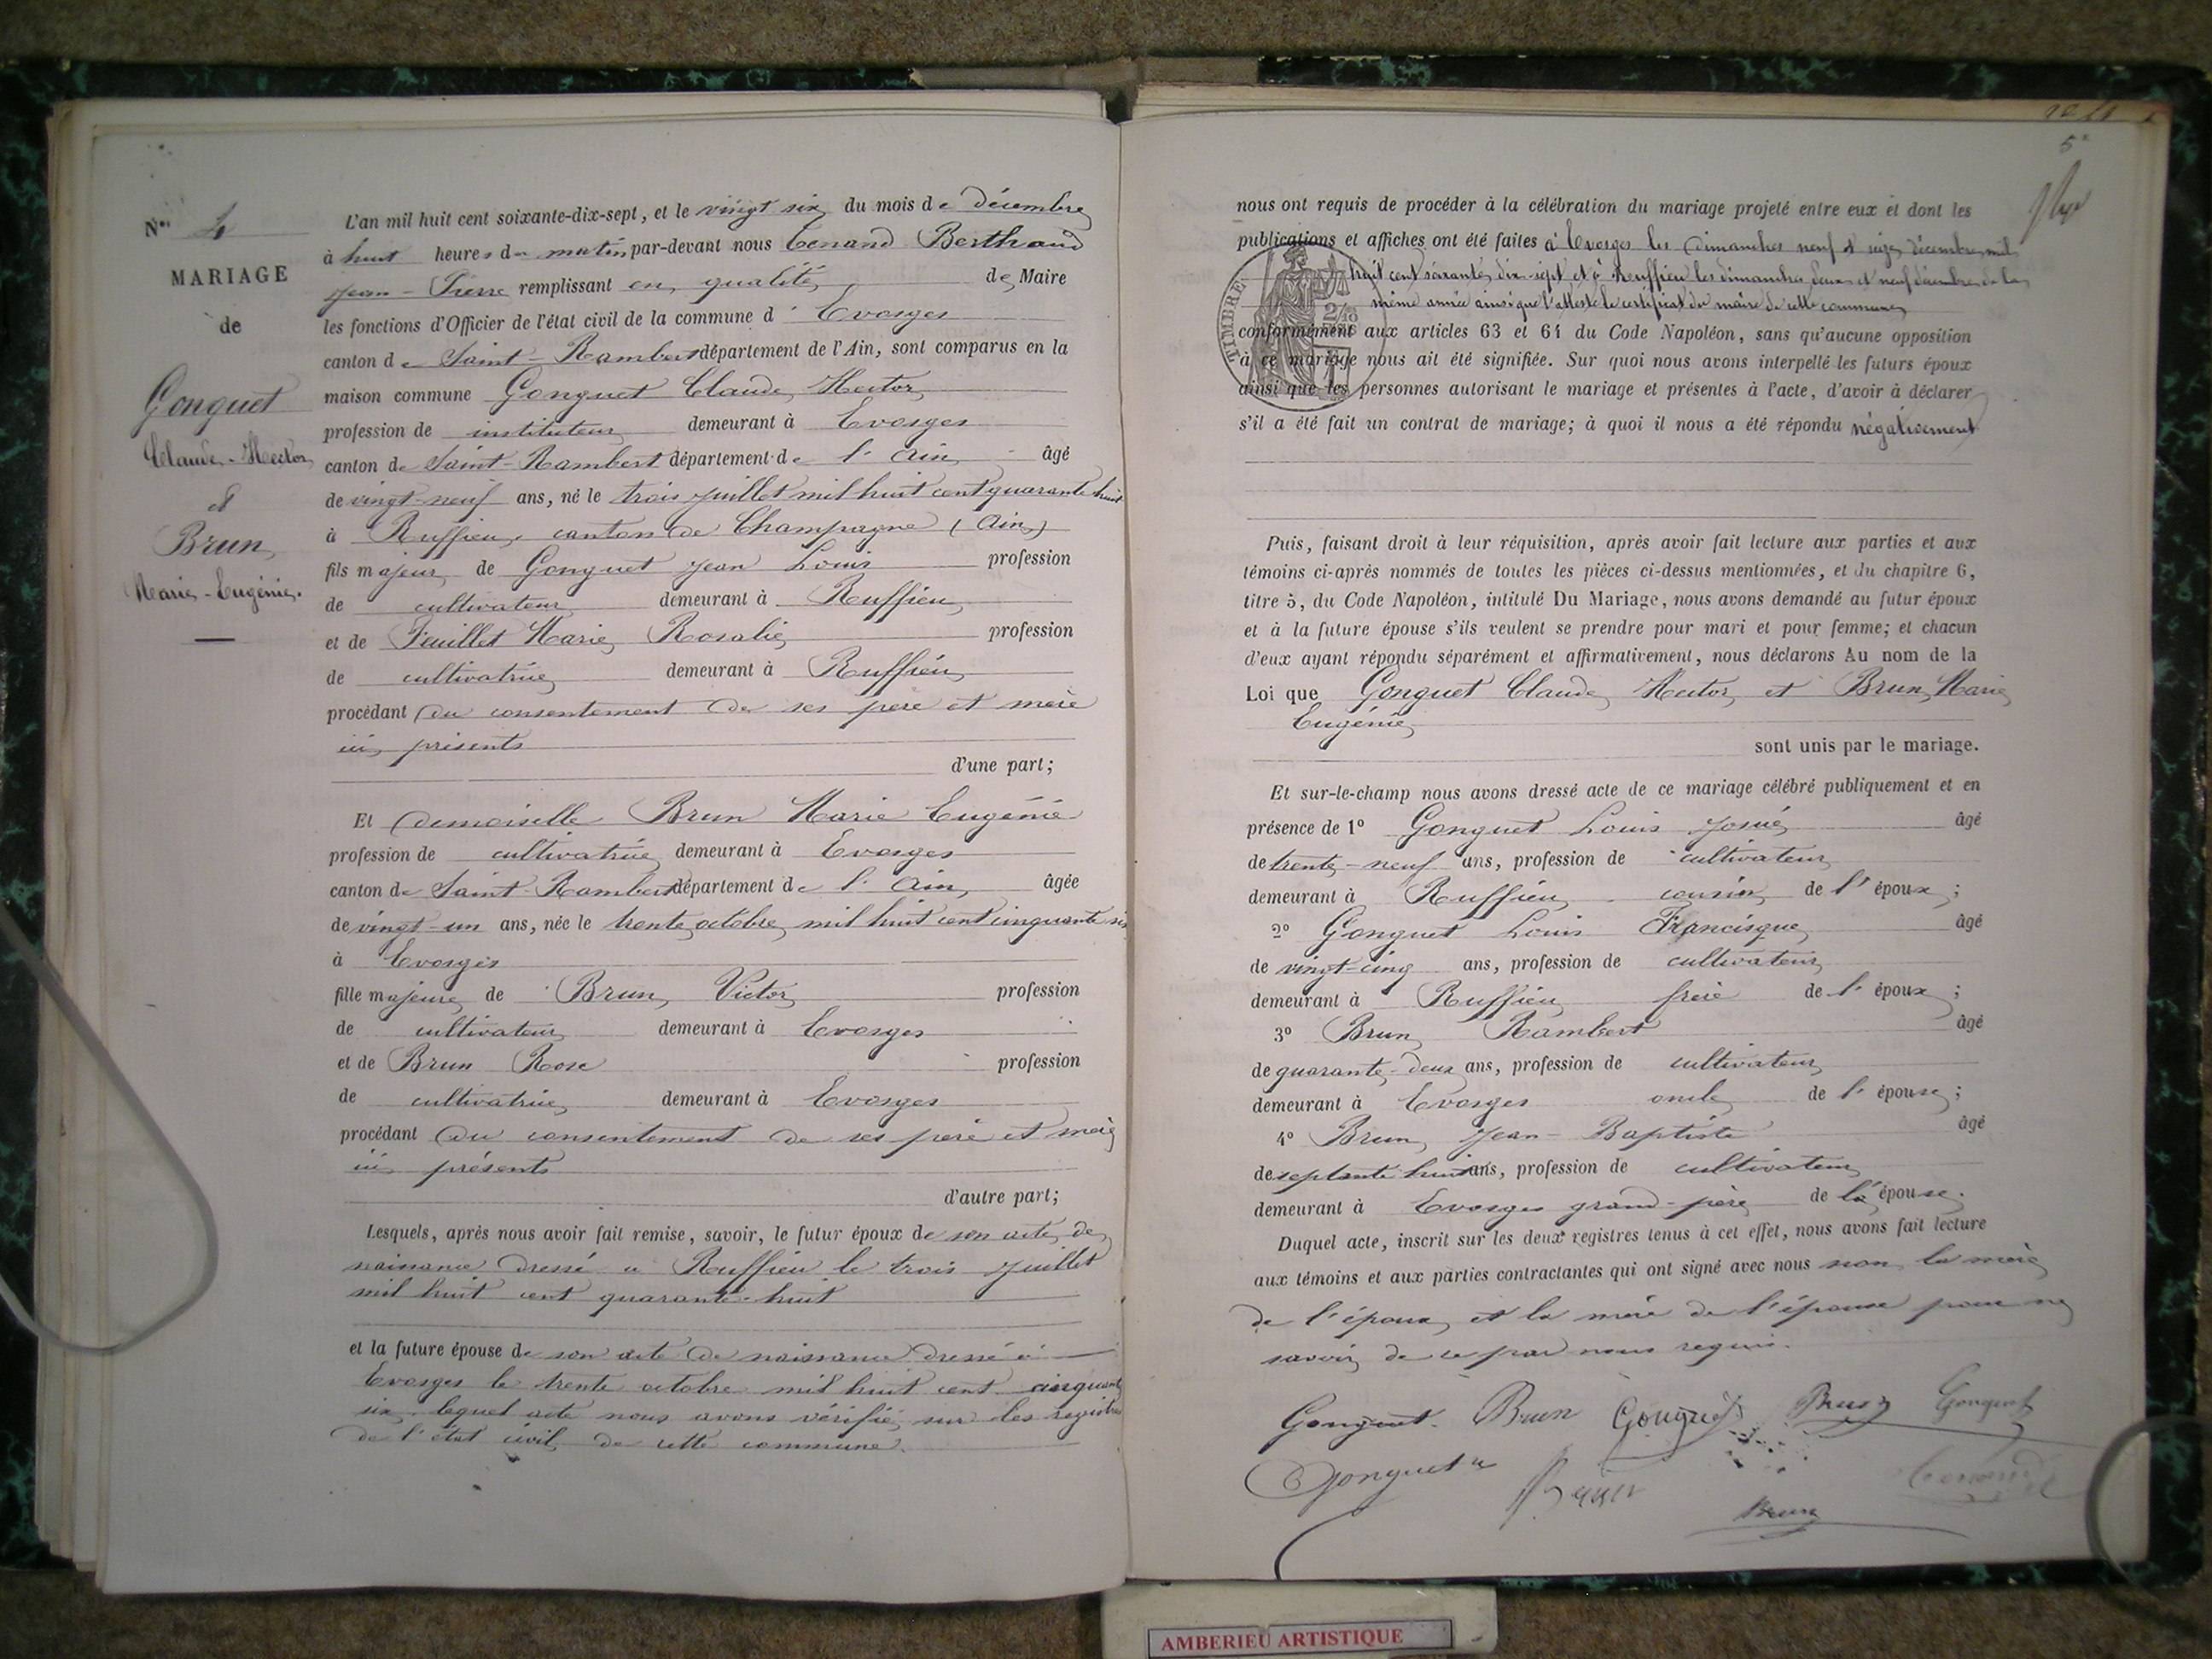 Nos 4
MARIAGE
de
Gonguet
Claude-Hector
et
Brun
Marie-Eugénie.
L'an mil huit cent soixante-dix-sept, et le vingt six du mois de décembre
à huit heures du matin par-devant nous Tenand Berthaud
Jean-Pierre remplissant en qualité de Maire
les fonctions d'Officier de l'état civil de la commune d'Evosges
canton de Saint-Rambert département de l'Ain, sont comparus en la
maison commune Gonguet Claude Hector
profession de instituteur demeurant à Evosges
canton de Saint-Rambert département de l'Ain âgé
de vingt-neuf ans, né le trois juillet mil huit cent quarante huit
à Ruffieu, canton de Champagne (Ain)
fils majeur de Gonguet Jean Louis profession
de cultivateur demeurant à Ruffieu
et de Juillet Marie Rosalie profession
de cultivatrice demeurant à Ruffieu
procédant du consentement de ses père et mère
ici présents
d'une part;
Et demoiselle Brun Marie Eugénie
profession de cultivatrice demeurant à Evosges
canton de Saint-Rambert département de l'Ain, âgée
de vingt-un ans, née le trente octobre mil huit cent cinquante six
à Evosges
fille majeure de Brun Victor profession
de cultivateur demeurant à Evosges
et de Brun Rose profession
de cultivatrice demeurant à Evosges
procédant du consentement de ses père et mère
ici présents
d'autre part;
Lesquels, après nous avoir fait remise, savoir, le futur époux de son acte de
naissance dressé à Ruffieu le trois juillet
mil huit cent quarante-huit
et la future épouse de son acte de naissance dressé à
Evosges le trente octobre mil huit cent cinquante
six, lequel acte nous avons vérifié sur les registres
de l'état civil de cette commune.
5e
nous ont requis de procéder à la célébration du mariage projeté entre eux et dont les
publications et affiches ont été faites à Evosges les dimanches neuf et seize décembre mil
huit cent soixante dix-sept et à Ruffieu les dimanches deux et neuf décembre de la
même année ainsi que l'atteste le certificat du maire de cette commune
TIMBRE
conformément aux articles 63 et 64 du Code Napoléon, sans qu'aucune opposition
à ce mariage nous ait été signifiée. Sur quoi nous avons interpellé les futurs époux
ainsi que les personnes autorisant le mariage et présentes à l'acte, d'avoir à déclarer
s'il a été fait un contrat de mariage; à quoi il nous a été répondu négativement
Puis, faisant droit à leur réquisition, après avoir fait lecture aux parties et aux
témoins ci-après nommés de toutes les pièces ci-dessus mentionnées, et du chapitre 6,
titre 5, du Code Napoléon, intitulé Du Mariage, nous avons demandé au futur époux
et à la future épouse s'ils veulent se prendre pour mari et pour femme; et chacun
d'eux ayant répondu séparément et affirmativement, nous déclarons Au nom de la
Loi que Gonguet Claude Hector et Brun Marie
Eugénie
sont unis par le mariage.
Et sur-le-champ nous avons dressé acte de ce mariage célébré publiquement et en
présence de 1º Gonguet Louis Josué âgé
de trente-neuf ans, profession de cultivateur
demeurant à Ruffieu cousin de l'époux;
2º Gonguet Louis Francisque âgé
de vingt-cinq ans, profession de cultivateur
demeurant à Ruffieu frère de l'époux;
3º Brun Rambert âgé
de quarante-deux ans, profession de cultivateur
demeurant à Evosges oncle de l'épouse;
4º Brun Jean-Baptiste âgé
de septante huit ans, profession de cultivateur
demeurant à Evosges grand-père de l'épouse.
Duquel acte, inscrit sur les deux registres tenus à cet effet, nous avons fait lecture
aux témoins et aux parties contractantes qui ont signé avec nous non la mère
de l'époux et la mère de l'épouse pour ne
savoir de ce par nous requis.
Gonguet Brun Gonguet Brun Gonguet
Gonguet Brun Tenand
Brun
AMBERIEU ARTISTIQUE